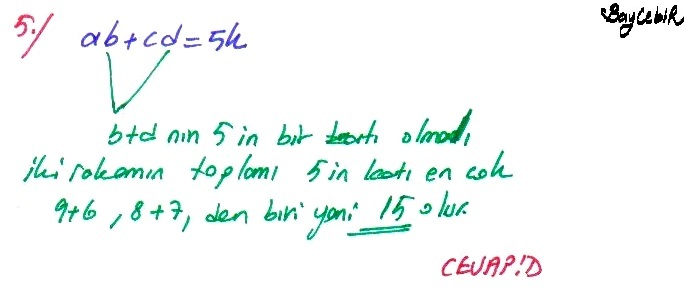 BaycebiR
5./ ab+cd=5k
b+d nin 5 in bir katı olmalı,
iki rakamın toplamı 5 in katı en çok
9+6, 8+7, den biri yani 15 olur.
CEVAP!D